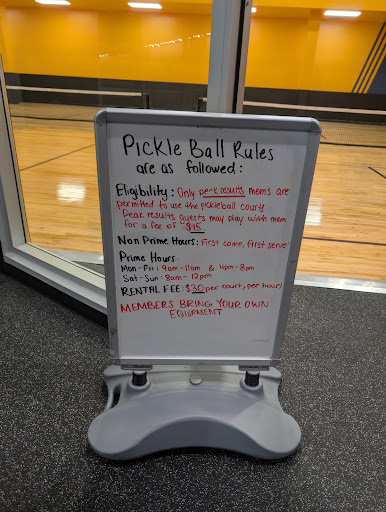 Pickle Ball Rules
are as followed:
Eligibility: Only peak results mems are
permitted to use the pickleball court!
Peak results guests may play with mem
for a fee of $15
Non Prime Hours: First come, first serve
Prime Hours
Mon-Fri: 9am-11am & 4pm-8pm
Sat-Sun: 8am-12pm
RENTAL FEE: $30 per court, per hour!
MEMBERS BRING YOUR OWN
EQUIPMENT